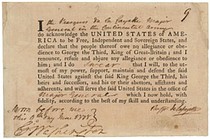 9
I The Marquis de la Fayette Major
General in the Continental Army
do acknowledge the UNITED STATES of AME-
RICA to be Free, Independent and Sovereign States, and
declare that the people thereof owe no allegiance or obe-
dience to George the Third, King of Great-Britain; and I
renounce, refuse and abjure any allegiance or obedience to
him; and I do Swear that I will, to the ut-
most of my power, support, maintain and defend the said
United States against the said King George the Third, his
heirs and successors, and his or their abettors, assistants and
adherents, and will serve the said United States in the office of
Major General which I now hold, with
fidelity, according to the best of my skill and understanding.
Sworn before me
this 9th June 1778